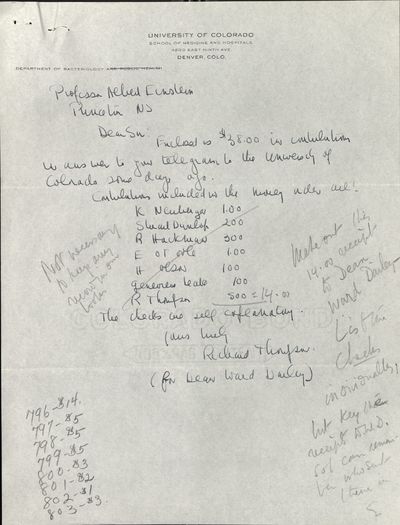 UNIVERSITY OF COLORADO
SCHOOL OF MEDICINE AND HOSPITALS
4200 EAST NINTH AVE.
DENVER, COLO.
DEPARTMENT OF BACTERIOLOGY AND PUBLIC HEALTH
Professor Albert Einstein
Princeton NJ
Dear Sir:
Enclosed is $38.00 in contributions
in answer to your telegram to the University of
Colorado some days ago.
Contributions included in the money order are:
K 1.00
Stuart Dunlop 200
R Hackman 300
E 1.00
H Olson 100
100
R Thompson 500 = 14.00
The checks are self explanatory.
Yours truly
Richard Thompson
(for Dean Ward Darley)
Not necessary
to
Make out the
14.00 receipt
to Dean
Ward Darley
List the
Checks
individually,
but key the
receipt
who sent
796-$14.
797-$5
798-$5
799-$5
800-$3
801-$2
802-$1
803-$3.